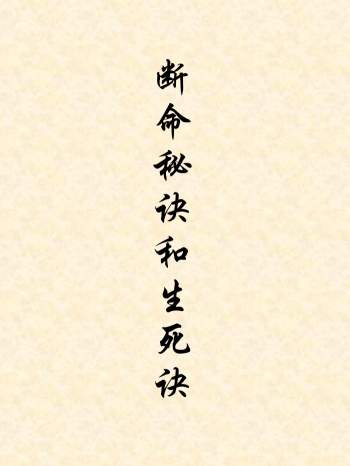 断命秘诀和生死诀